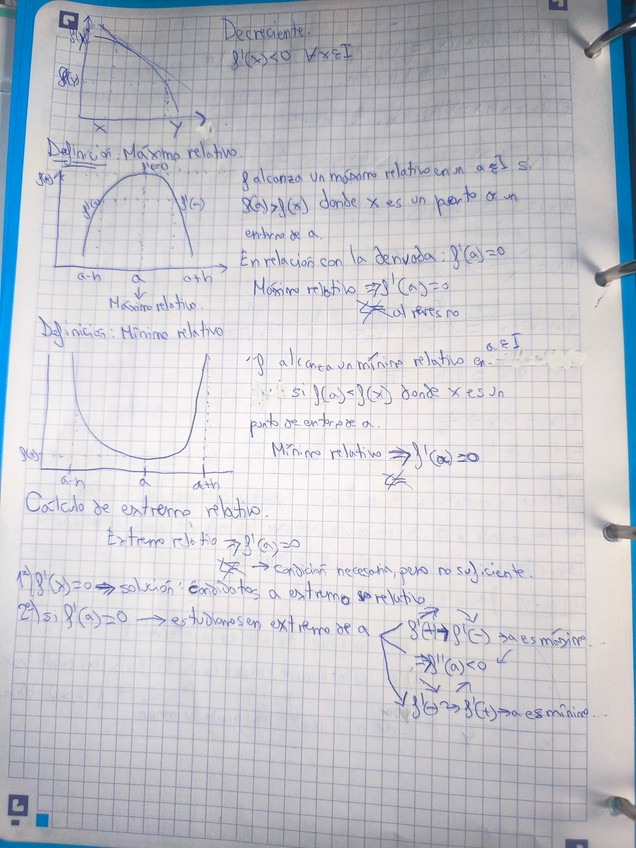 Decreciente.
f(x)
f'(x)<0 ∀x∈I
f(y)
x y
Definición: Máximo relativo.
f'=0
f(a)
f'(+) f'(-)
a-h a a+h
Máximo relativo.
f alcanza un máximo relativo en un a∈I si
f(a)>f(x) donde x es un punto de un
entorno de a.
En relación con la derivada: f'(a)=0
Máximo relativo ⇒ f'(a)=0
⇍ al reves no
Definición: Mínimo relativo
f(a)
a-h a a+h
f alcanza un mínimo relativo en a∈I
si f(a)<f(x) donde x es un
punto de entorno de a.
Mínimo relativo ⇒ f'(a)=0
⇍
Cálculo de extremo relativo.
Extremo relatio ⇒ f'(a)=0
⇍ → condición necesaria, pero no suficiente.
1º) f'(x)=0 ⇒ solución: candidatos a extremo relativo
2º) si f'(a)=0 → estudiamos en extremo de a
f'(+) → f'(-) → a es máximo...
⇒ f''(a)<0
f'(-) → f'(+) → a es mínimo...